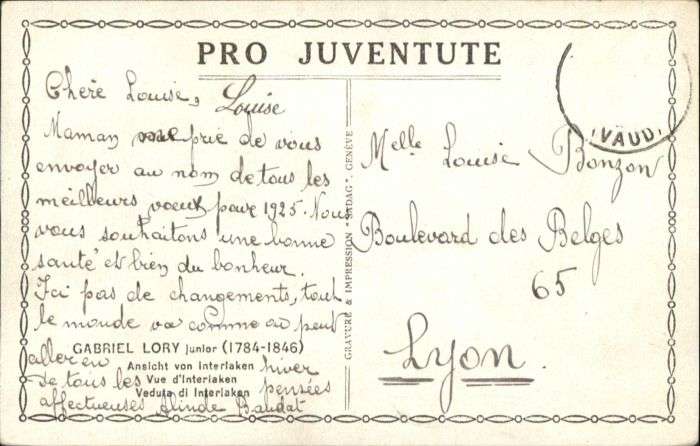 PRO JUVENTUTE
Chère Louise, Louise
Maman prie de vous
envoyer au nom de tous les
meilleurs voeux pour 1925. Nous
vous souhaitons une bonne
santé et bien du bonheur.
Ici pas de changements, tout
le monde va comme on peut
GABRIEL LORY junior (1784-1846)
aller en Ansicht von Interlaken hiver
de tous les Vue d'Interlaken pensées
Veduta di Interlaken
affectueuses Baudat
GRAVURE & IMPRESSION "SADAG", GENÈVE
(VAUD)
Melle Louise Bonzon
Boulevard des Belges
65
Lyon.